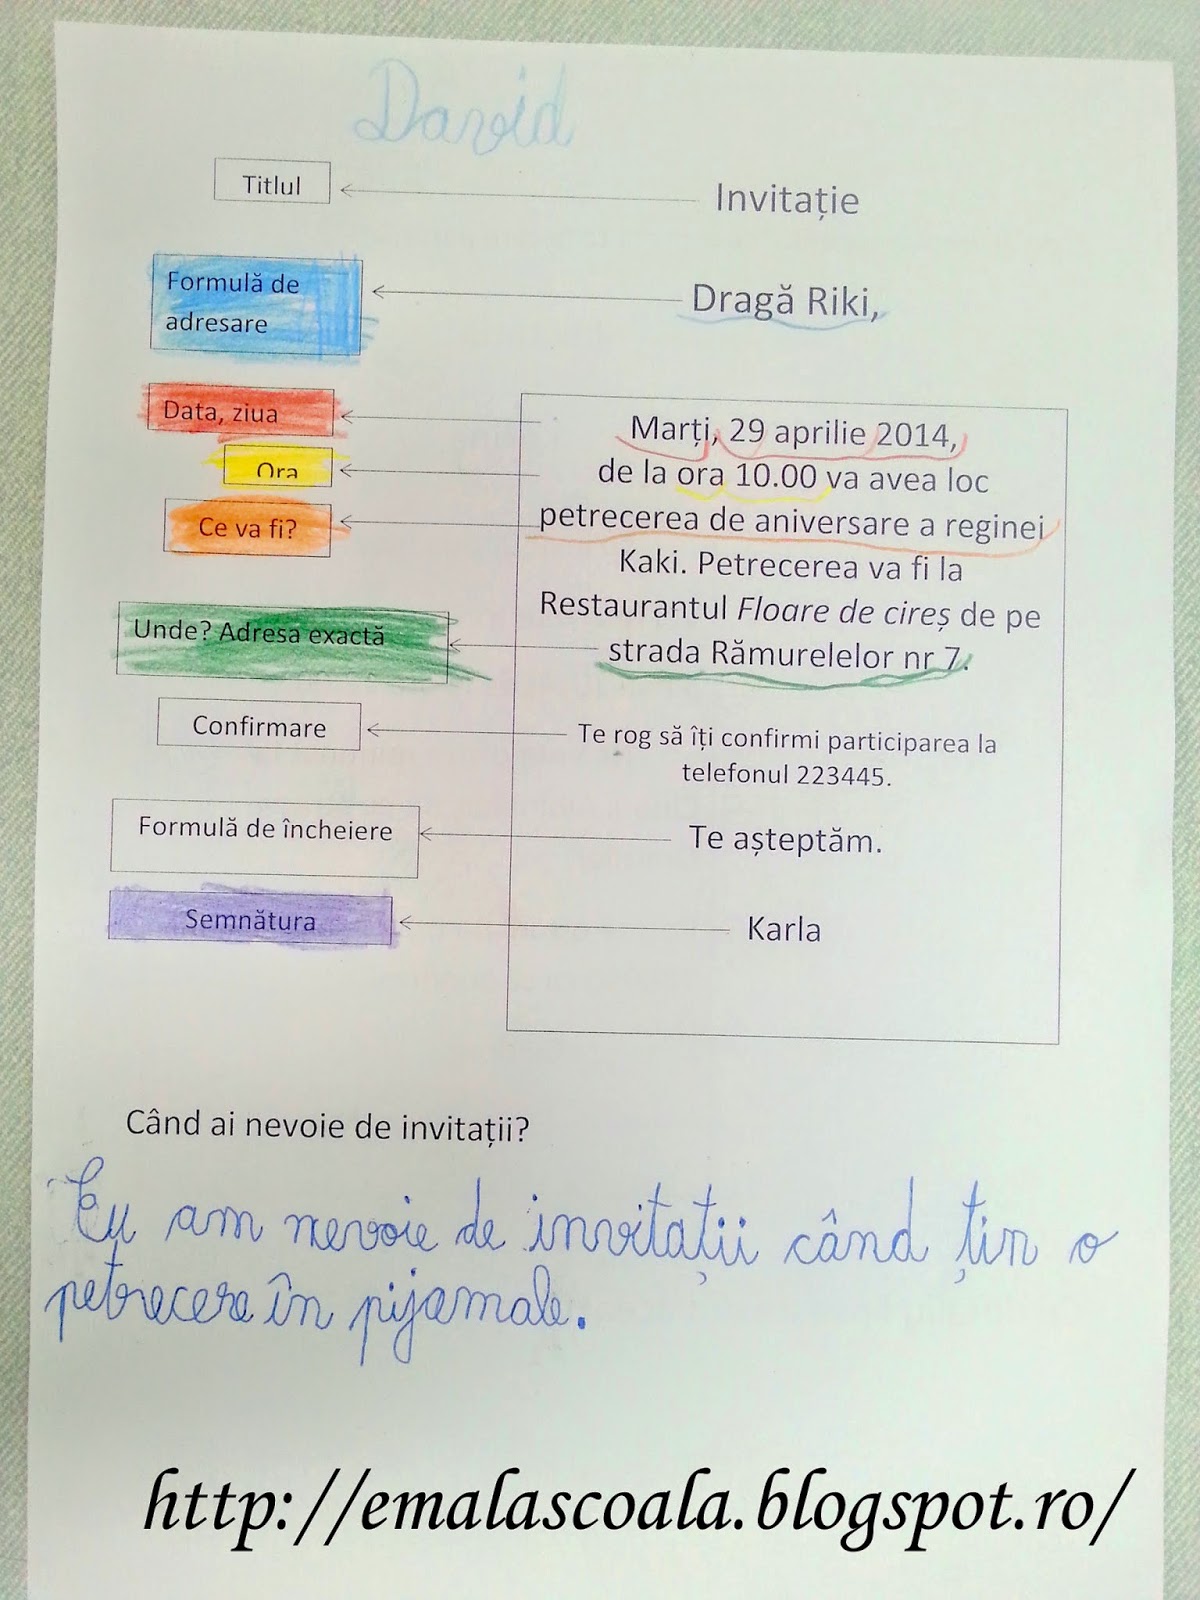 David
Titlul
Invitație
Formulă de
adresare
Dragă Riki,
Data, ziua
Marți, 29 aprilie 2014,
Ora
de la ora 10.00 va avea loc
Ce va fi?
petrecerea de aniversare a reginei
Kaki. Petrecerea va fi la
Restaurantul Floare de cireș de pe
Unde? Adresa exactă
strada Rămurelelor nr 7.
Confirmare
Te rog să îți confirmi participarea la
telefonul 223445.
Formulă de încheiere
Te așteptăm.
Semnătura
Karla
Când ai nevoie de invitații?
Eu am nevoie de invitații când țin o
petrecere în pijamale.
http://emalascoala.blogspot.ro/